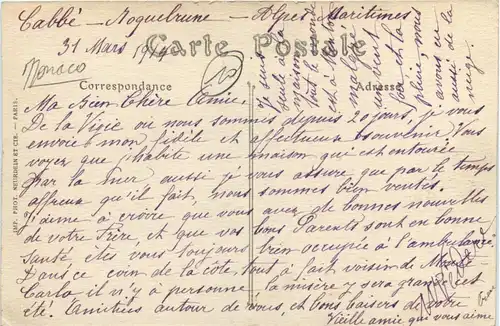 Cabbé - Roquebrune - Alpes Maritimes
31 Mars 1914
Carte Postale
Monaco
Correspondance
Adresse
Ma Bien Chère Amie.
De la Vigie où nous sommes depuis 20 jours, je vous
envoie mon fidèle et affectueux souvenir. Vous
voyez que j'habite une maison qui est entourée
par la mer aussi je vous assure que par le temps
affreux qu'il fait, nous sommes bien ventés.
J'aime à croire que vous avez de bonnes nouvelles
de votre Frère, et que vos bons Parents sont en bonne
santé. êtes vous toujours bien occupée à l'ambulance
Dans ce coin de la côte, tout à fait voisin de Monte
Carlo il n'y a personne, la misère y sera grande cet
été. Amitiés autour de vous, et bons baisers de votre
Vieille amie qui vous aime
Je suis
seule à la
maison
tout le monde
est à
malgré
un vent
fou et la
pluie, nous
avons eu
aussi de la
neige
PHOT. NEURDEIN ET CIE. - PARIS.